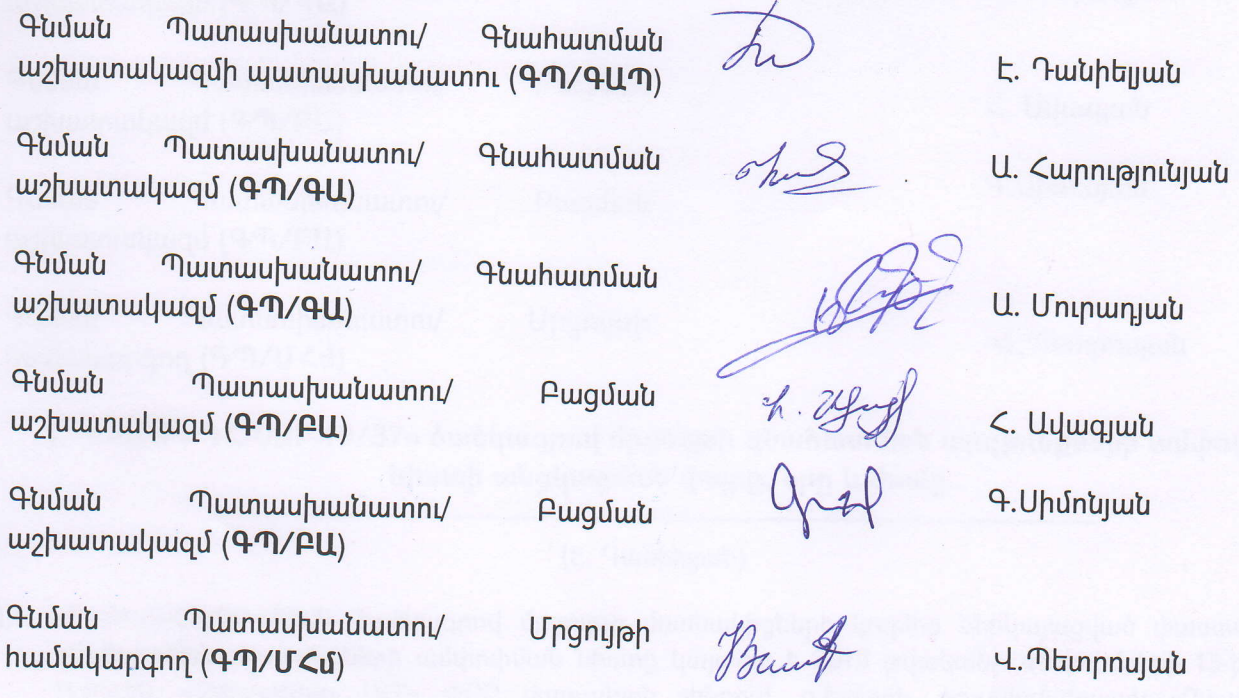 Գնման Պատասխանատու/ Գնահատման
աշխատակազմի պատասխանատու (ԳՊ/ԳԱՊ)
Է. Դանիելյան
Գնման Պատասխանատու/ Գնահատման
աշխատակազմ (ԳՊ/ԳԱ)
Ա. Հարությունյան
Գնման Պատասխանատու/ Գնահատման
աշխատակազմ (ԳՊ/ԳԱ)
Ա. Մուրադյան
Գնման Պատասխանատու/ Բացման
աշխատակազմ (ԳՊ/ԲԱ)
Հ. Ավագյան
Գնման Պատասխանատու/ Բացման
աշխատակազմ (ԳՊ/ԲԱ)
Գ.Սիմոնյան
Գնման Պատասխանատու/ Մրցույթի
համակարգող (ԳՊ/ՄՀ)
Վ. Պետրոսյան